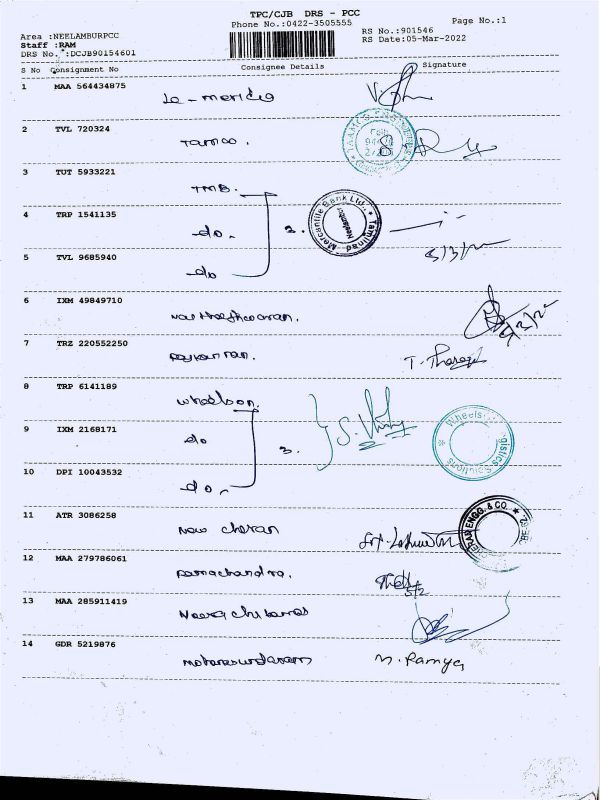 TPC/CJB DRS - PCC
Phone No.:0422-3505555
Page No.:1
Area :NEELAMBURPCC
RS No.:901546
Staff :RAM
RS Date:05-Mar-2022
DRS No. :DCJB90154601
S No Consignment No Consignee Details Signature
1 MAA 564434875
Le-meridia
2 TVL 720324
Tamco.
3 TUT 5933221
TMB.
4 TRP 1541135
do.
3.
Tamilnad Mercantile Bank Ltd.,
Neelambur
5 TVL 9685940
do
5/3/22
6 IXM 49849710
7 TRZ 220552250
8 TRP 6141189
9 IXM 2168171
do
3.
Wheels Logistics Solutions
10 DPI 10043532
do.
11 ATR 3086258
New cheran
CHERAN ENGG. & CO.
12 MAA 279786061
Ramachandra.
13 MAA 285911419
14 GDR 5219876
M. Ramya